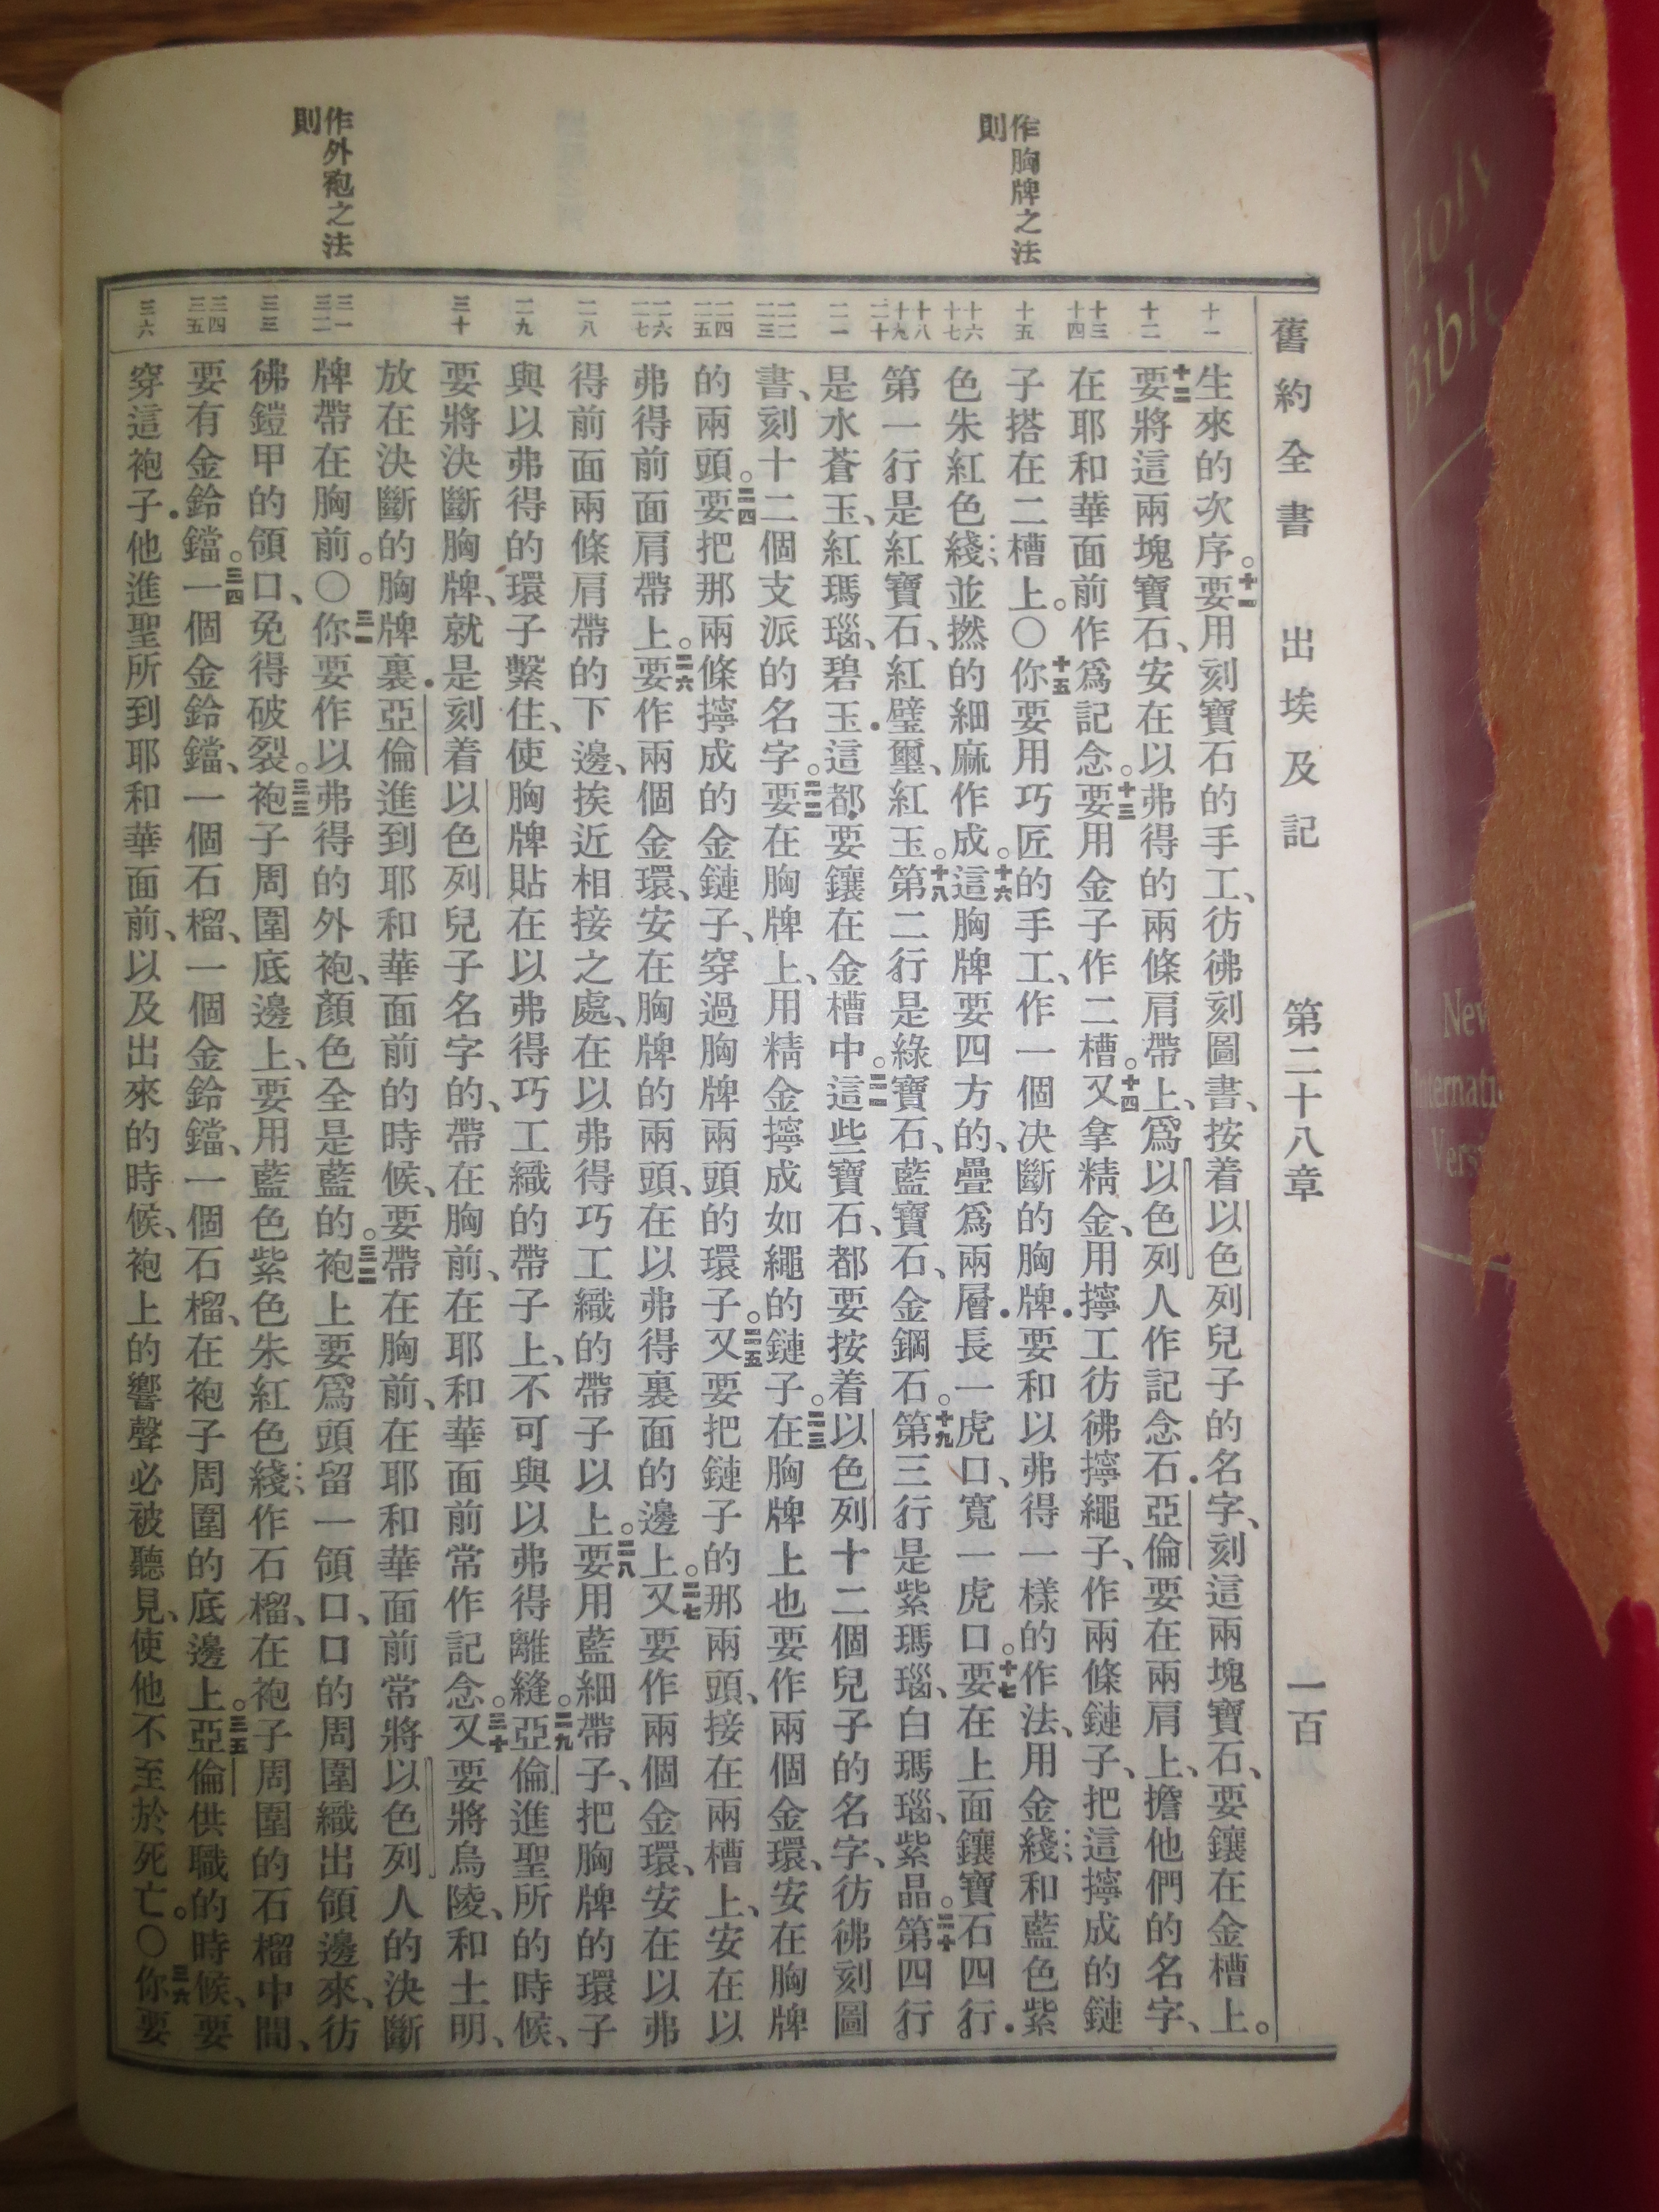 舊約全書 出埃及記 第二十八章 一百
作胸牌之法
則
作外袍之法
則
十一
十二
十三
十四
十五
十六
十七
十八
十九
二十
二一
二二
二三
二四
二五
二六
二七
二八
二九
三十
三一
三二
三三
三四
三五
三六
生來的次序。十一要用刻寶石的手工、彷彿刻圖書、按着以色列兒子的名字、刻這兩塊寶石、要鑲在金槽上。
十二要將這兩塊寶石、安在以弗得的兩條肩帶上、爲以色列人作記念石．亞倫要在兩肩上、擔他們的名字、
在耶和華面前作爲記念。十三要用金子作二槽。十四又拿精金、用擰工彷彿擰繩子、作兩條鏈子、把這擰成的鏈
子搭在二槽上。〇十五你要用巧匠的手工、作一個决斷的胸牌．要和以弗得一樣的作法、用金綫和藍色紫
色朱紅色綫、並撚的細麻作成。十六這胸牌要四方的、疊爲兩層．長一虎口、寬一虎口。十七要在上面鑲寶石四行．
第一行、是紅寶石、紅璧璽、紅玉。十八第二行是綠寶石、藍寶石、金鋼石。十九第三行是紫瑪瑙、白瑪瑙、紫晶。二十第四行、
是水蒼玉、紅瑪瑙、碧玉．這都要鑲在金槽中。二一這些寶石、都要按着以色列十二個兒子的名字、彷彿刻圖
書、刻十二個支派的名字。二二要在胸牌上、用精金擰成如繩的鏈子。二三在胸牌上也要作兩個金環、安在胸牌
的兩頭。二四要把那兩條擰成的金鏈子、穿過胸牌兩頭的環子。二五又要把鏈子的那兩頭、接在兩槽上、安在以
弗得前面肩帶上。二六要作兩個金環、安在胸牌的兩頭、在以弗得裏面的邊上。二七又要作兩個金環、安在以弗
得前面兩條肩帶的下邊、挨近相接之處、在以弗得巧工織的帶子以上。二八要用藍細帶子、把胸牌的環子
與以弗得的環子繫住、使胸牌貼在以弗得巧工織的帶子上、不可與以弗得離縫。二九亞倫進聖所的時候、
要將決斷胸牌、就是刻着以色列兒子名字的、帶在胸前、在耶和華面前常作記念。三十又要將烏陵、和土明、
放在決斷的胸牌裏．亞倫進到耶和華面前的時候、要帶在胸前、在耶和華面前常將以色列人的決斷
牌帶在胸前。〇三一你要作以弗得的外袍、顏色全是藍的。三二袍上要爲頭留一領口、口的周圍織出領邊來、彷
彿鎧甲的領口、免得破裂。三三袍子周圍底邊上、要用藍色紫色朱紅色綫作石榴、在袍子周圍的石榴中間、
要有金鈴鐺。三四一個金鈴鐺、一個石榴、一個金鈴鐺、一個石榴、在袍子周圍的底邊上。三五亞倫供職的時候、要
穿這袍子．他進聖所到耶和華面前、以及出來的時候、袍上的響聲必被聽見、使他不至於死亡。〇三六你要
Holy
Bible
New
Internati
Vers